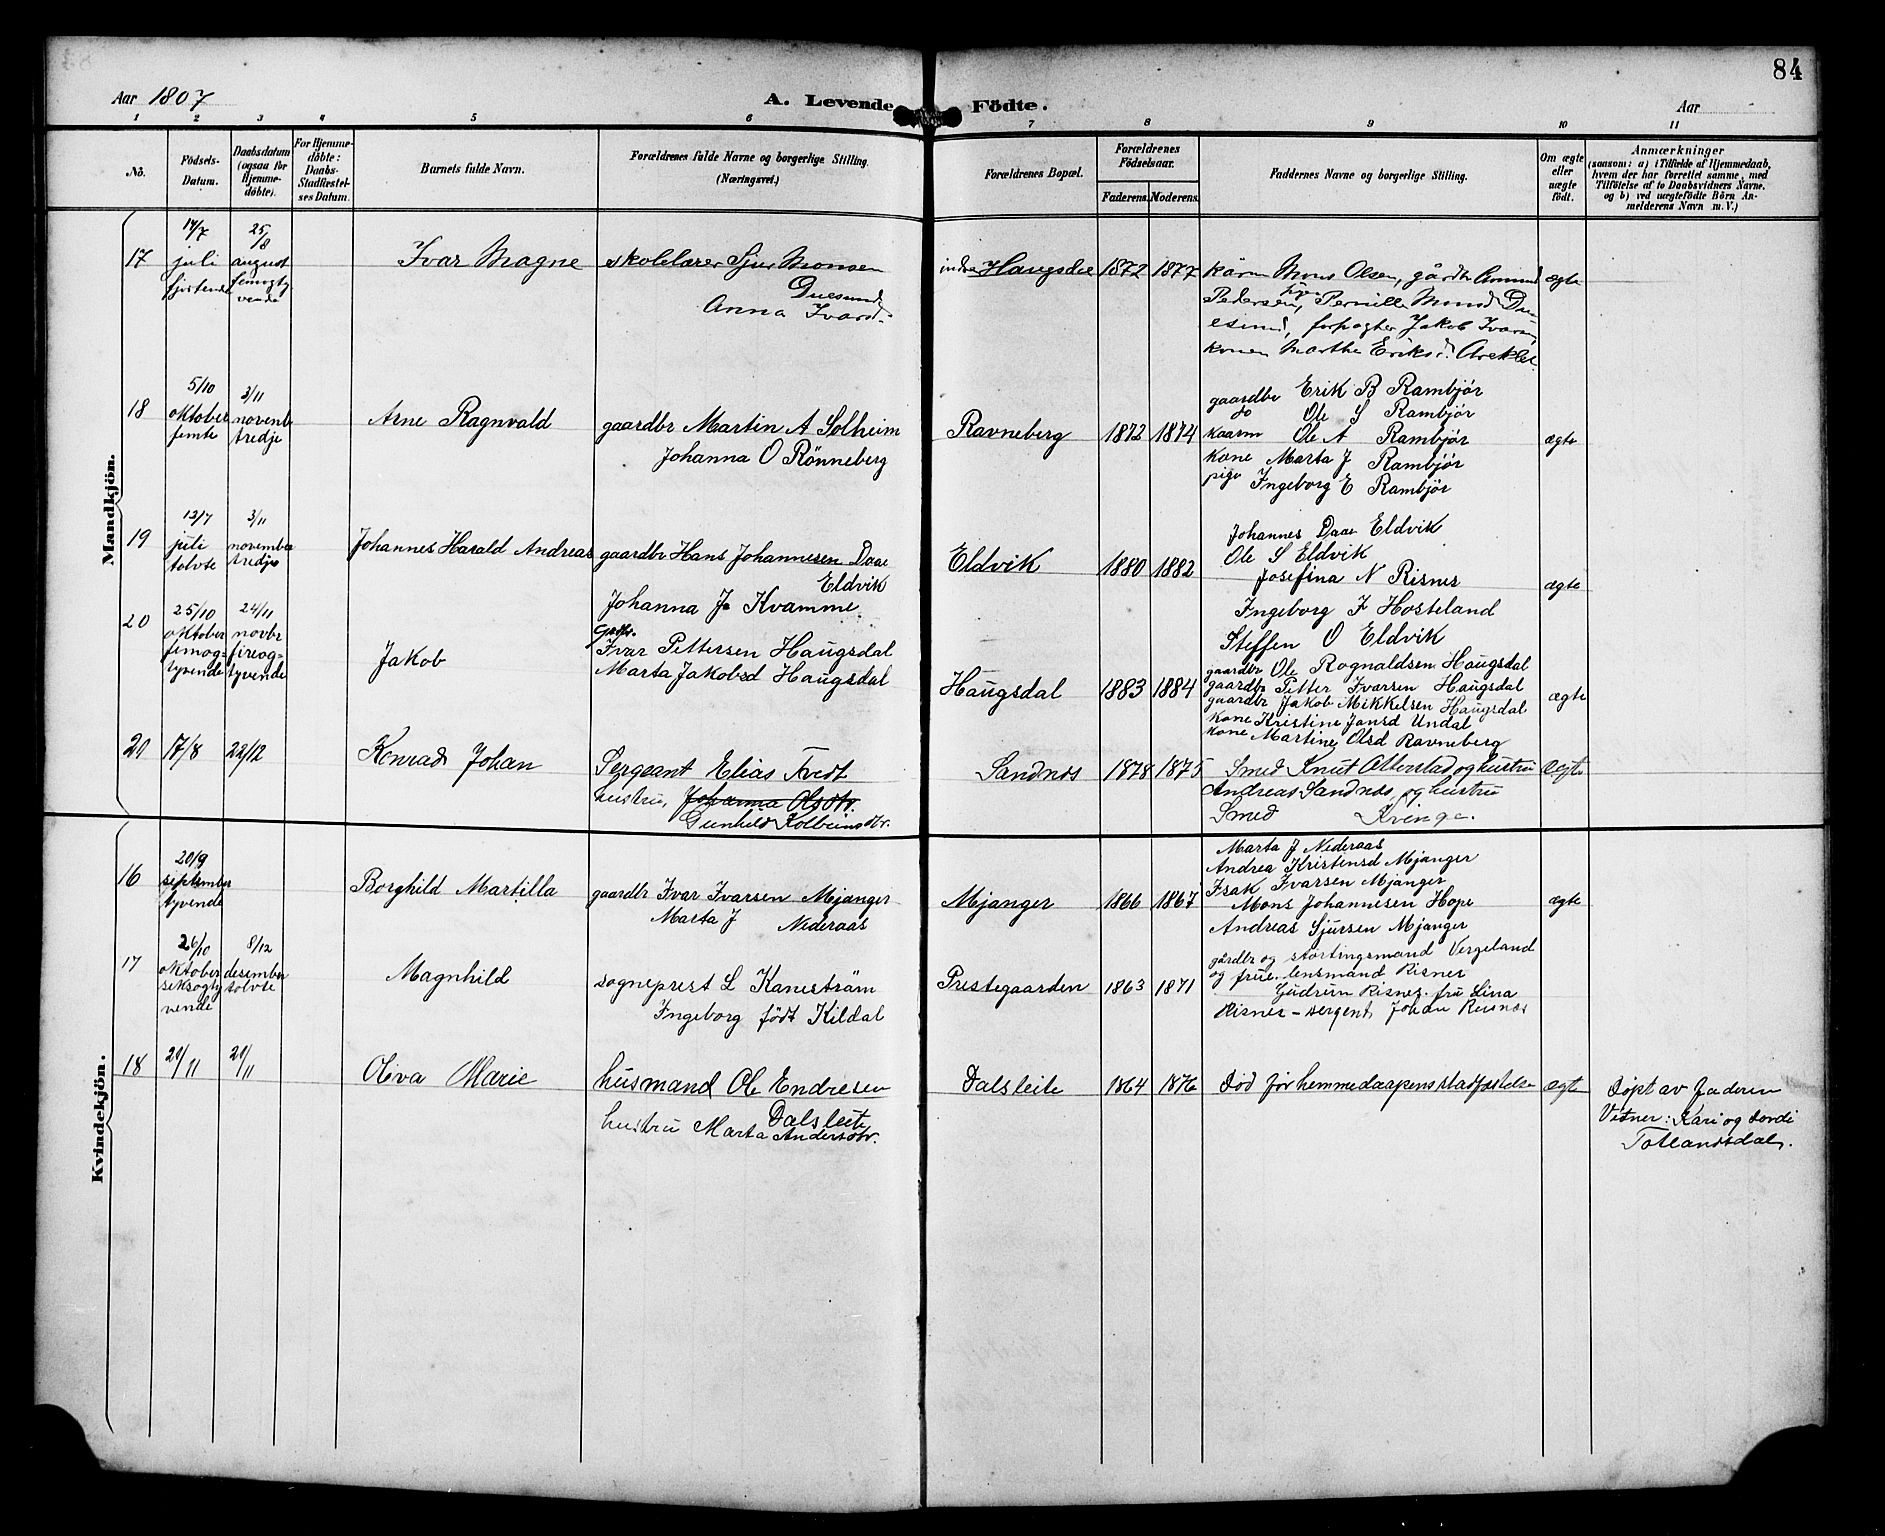 84
Aar 1807
A. Levende Födte.
Aar
1 2 3 4 5 6 7 8 9 10 11
No.
Födsels-
Datum.
Daabsdatum
(ogsaa for
Hjemme-
döbte).
For Hjemme-
döbte:
Daabs-
Stadfæstel-
ses Datum.
Barnets fulde Navn.
Forældrenes fulde Navne og borgerlige Stilling.
(Næringsvei.)
Forældrenes Bopæl.
Forældrenes
Födselsaar.
Faderens. Moderens.
Faddernes Navne og borgerlige Stilling.
Om ægte
eller
uægte
födt.
Anmærkninger
(saasom: a) i Tilfælde af Hjemmedaab,
hvem der har forrettet samme, med
Tilföielse af to Daabsvidners Navne.
og b) ved uægtefödte Börn An-
melderens Navn m. V.)
Mandkjön.
17
14/7
juli
fjortende
25/8
august
femogty
vende
Ivar Magne
skolelærer Sjur Monsen
Duesund
Anna Ivarsd.
indre Haugsdal
1872 1877
kårm Mons Olsen, gårdbr Amund
Pedersen, pige Pernille Monsd Due
esund, forpagter Jakob Ivarsen
konen Marthe Eriksd.
ægte
18
5/10
oktober
femte
3/11
novemb
tredje
Arne Ragnvald
gaardbr Martin A Solheim
Johanna O Rönneberg
Ravneberg
1872 1874
gaardbr Erik B Rambjör
do Ole S Rambjör
kaarm Ole A Rambjör
kone Marta J Rambjör
pige Ingeborg E Rambjör
ægte
19
12/7
juli
tolvte
3/11
november
tredje
Johannes Harald Andreas
gaardbr Hans Johannesen Daae
Eldvik
Johanna J Kvamme
Eldvik
1880 1882
Johannes Daae Eldvik
Ole S Eldvik
Josefina N Risnes
Ingeborg J Hosteland
Steffen O Eldvik
ægte
20
25/10
oktober
femog-
tyvende
24/11
novbr
fireog-
tyvende
Jakob
Grdbr.
Ivar Pettersen Haugsdal
Marta Jakobsd Haugsdal
Haugsdal
1883 1884
gaardbr Ole Rognaldsen Haugsdal
gaardbr Petter Ivarsen Haugsdal
gaardbr Jakob Mikkelsen Haugsdal
kone Kristine Jansd Undal
kone Martine Olsd Ravneberg
ægte
21
17/8
22/12
Konrad Johan
Sergeant Elias Tvedt
hustru, Johanna Olsdtr.
Gunhild Kolbeinsdtr.
Sandnes
1878 1875
Smed Knut Otterstad og hustru
Andreas Sandnes og hustru
Smed Kvinge.
Ægte
Kvindekjön.
16
20/9
september
tyvende
Borghild Martilla
gaardbr Ivar Ivarsen Mjanger
Marta J Nederaas
Mjanger
1866 1867
Marta J Nederaas
Andrea Kristensd Mjanger
Isak Ivarsen Mjanger
Mons Johannesen Hope
Andreas Sjursen Mjanger
ægte
17
26/10
oktober
seksogty
vende
8/12
desember
tolvte
Magnhild
sogneprest L Kaneström
Ingeborg födt Kildal
Prestegaarden
1863 1871
gårdbr og stortingsmand Vergeland
og frue, lensmand Risnes
Gudrun Risnes, fru Lina
Risnes - sergent Johan Reisnes
18
20/11
20/11
Oliva Marie
husmand Ole Endresen
Dalsleite
hustru Marta Andersdtr.
Dalsleite
1864 1876
Död för hemmedaapens stadfæstelse
ægte
Döpt av faderen
Vitner: Kari og Dordi
Totlandsdal.